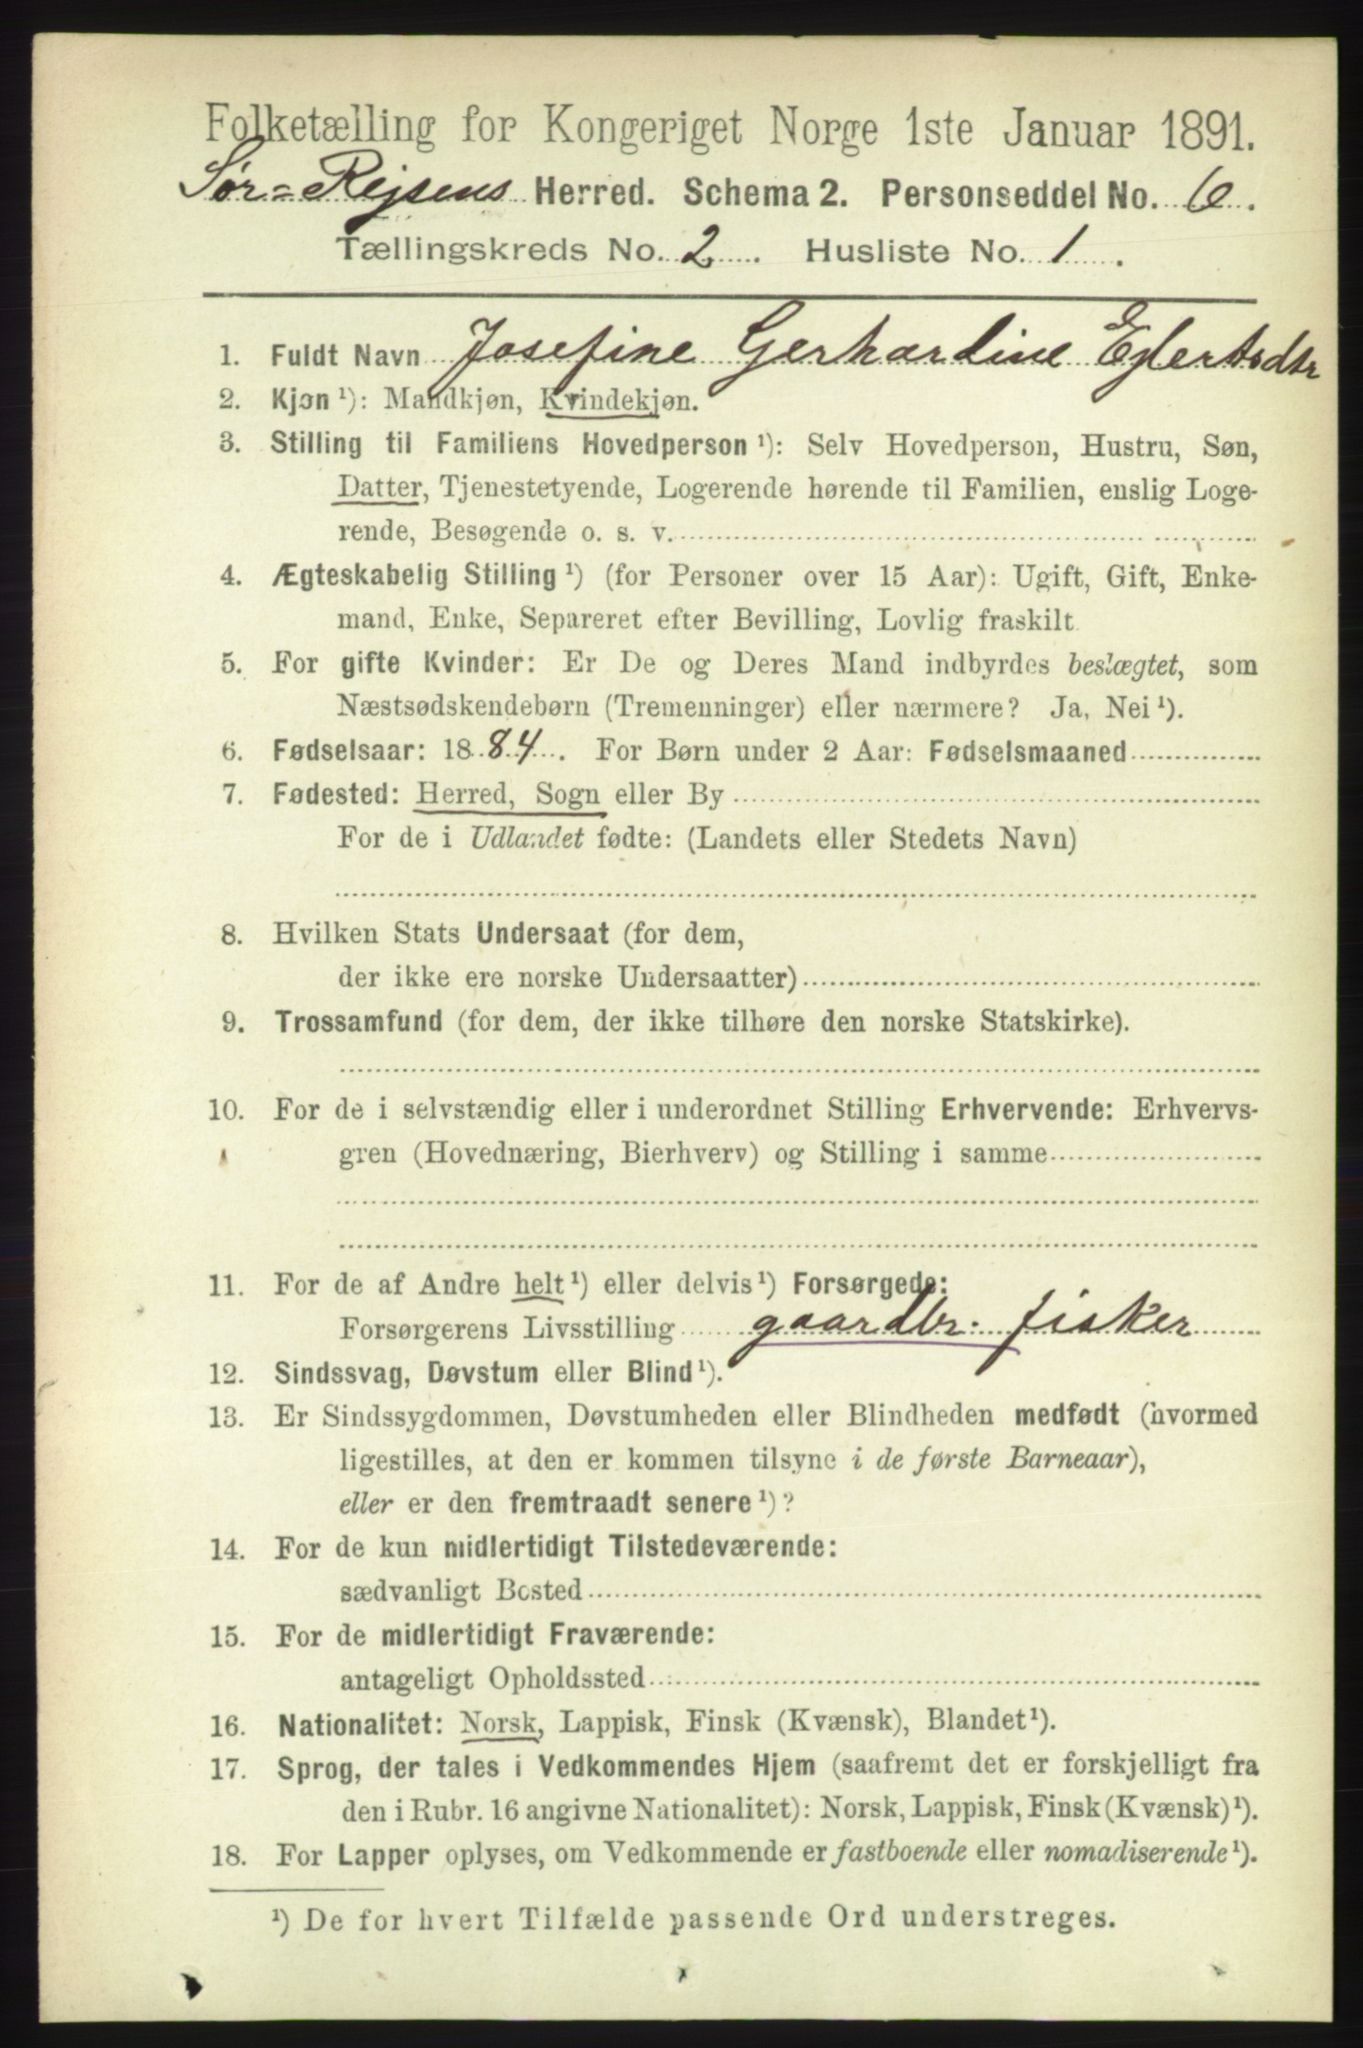 Folketælling for Kongeriget Norge 1ste Januar 1891.
Sør=Rejsens Herred. Schema 2. Personseddel No. 6.
Tællingskreds No. 2. Husliste No. 1.
1. Fuldt Navn Josefine Gerhardine Ejlertsdtr
2. Kjøn ¹): Mandkjøn, Kvindekjøn.
3. Stilling til Familiens Hovedperson ¹): Selv Hovedperson, Hustru, Søn,
Datter, Tjenestetyende, Logerende hørende til Familien, enslig Loge-
rende, Besøgende o. s. v.
4. Ægteskabelig Stilling ¹) (for Personer over 15 Aar): Ugift, Gift, Enke-
mand, Enke, Separeret efter Bevilling, Lovlig fraskilt
5. For gifte Kvinder: Er De og Deres Mand indbyrdes beslægtet, som
Næstsødskendebørn (Tremenninger) eller nærmere? Ja, Nei ¹).
6. Fødselsaar: 1884. For Børn under 2 Aar: Fødselsmaaned
7. Fødested: Herred, Sogn eller By
For de i Udlandet fødte: (Landets eller Stedets Navn)
8. Hvilken Stats Undersaat (for dem,
der ikke ere norske Undersaatter)
9. Trossamfund (for dem, der ikke tilhøre den norske Statskirke).
10. For de i selvstændig eller i underordnet Stilling Erhvervende: Erhvervs-
gren (Hovednæring, Bierhverv) og Stilling i samme
11. For de af Andre helt ¹) eller delvis ¹) Forsørgede:
Forsørgerens Livsstilling gaardbr. fisker
12. Sindssvag, Døvstum eller Blind ¹).
13. Er Sindssygdommen, Døvstumheden eller Blindheden medfødt (hvormed
ligestilles, at den er kommen tilsyne i de første Barneaar),
eller er den fremtraadt senere ¹)?
14. For de kun midlertidigt Tilstedeværende:
sædvanligt Bosted
15. For de midlertidigt Fraværende:
antageligt Opholdssted
16. Nationalitet: Norsk, Lappisk, Finsk (Kvænsk), Blandet ¹).
17. Sprog, der tales i Vedkommendes Hjem (saafremt det er forskjelligt fra
den i Rubr. 16 angivne Nationalitet): Norsk, Lappisk, Finsk (Kvænsk) ¹).
18. For Lapper oplyses, om Vedkommende er fastboende eller nomadiserende ¹).
¹) De for hvert Tilfælde passende Ord understreges.